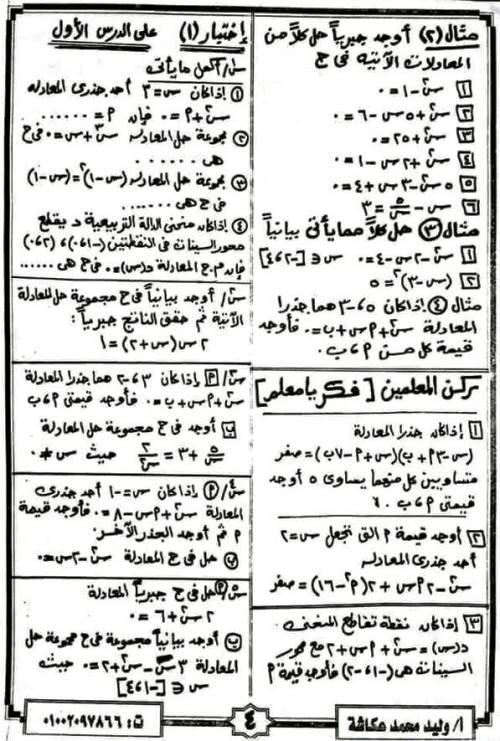 مثال (٢) أوجد جبرياً حل كلاً من
المعادلات الآتية فى ح
١ س² - ١ = ٠
٢ س² + ٥س - ٦ = ٠
٣ س² + ٢٥ = ٠
٤ س² + ٢س - ١ = ٠
٥ ٥س² - ٣س + ٤ = ٠
٦ س - ٥/س = ٣
مثال ٣ حل كلاً مما يأتى بيانياً
١ س² - ٢س - ٤ = ٠ س ∈ [-٢،٤]
٢ (س - ٣)² = ٥
مثال ٤ إذا كان ٥، -٣ هما جذرا
المعادلة س² + ٩س + ب = ٠ فأوجد
قيمة كل من ٩، ب .
ركن المعلمين [فكر يا معلم]
١ إذا كان جذرا المعادلة
(س - ٩٣ + ب)(س + ٩ - ٧ب) = صفر
متساويين كل منهما يساوى ٥ أوجد
قيمتى ٩، ب .
٢ أوجد قيمة ٩ التى تجعل س = ٢
أحد جذرى المعادلة
س² - ٢٩س + ٢(٩² - ١٦) = صفر
٣ إذا كان نقطة تقاطع المنحنى
د(س) = س² + ٩س + ٢ مع محور
السينات هى (-١، -٢) فأوجد قيمة ٩
إختبار (١) على الدرس الأول
س١/ أكمل ما يأتى
١ إذا كان س = ٣ أحد جذرى المعادلة
س² + ٩ = ٠ فإن ٩ = ......
٢ مجموعة حل المعادلة س² + ٣س = ٠ فى ح
هى ......
٣ مجموعة حل المعادلة (س - ١)² = (س - ١)
فى ح هى ......
٤ إذا كان منحنى الدالة التربيعية د يقطع
محور السينات فى النقطتين (-١، ٠)، (٢، ٠)
فإن م.ح المعادلة د(س) = ٠ فى ح هى ......
س٢/ أوجد بيانياً فى ح مجموعة حل المعادلة
الآتية ثم حقق الناتج جبرياً:
٢س(س + ٢) = ١
س٣/ ٩ إذا كان ٣، -٢ هما جذرا المعادلة
س² + ٩س + ب = ٠ فأوجد قيمتى ٩، ب
ب أوجد فى ح مجموعة حل المعادلة
٥/س + ٣ = ٢/س² حيث س ≠ ٠
س٤/ ٩ إذا كان س = -١ أحد جذرى
المعادلة س² + ٩س - ٨ = ٠ فأوجد قيمة
٩ ثم أوجد الجذر الآخر
ب حل فى ح المعادلة س² - ٢س = ٠
س٥/ ٩ حل فى ح جبرياً المعادلة
٢س² + ٦ = ٠
ب أوجد بيانياً مجموعة فى ح مجموعة حل
المعادلة ٣س - س² + ٢ = ٠ حيث
س ∈ [-١،٤]
أ/ وليد محمد عكاشة
٤
ت: ٠١٠٠٢٠٩٧٨٦٦